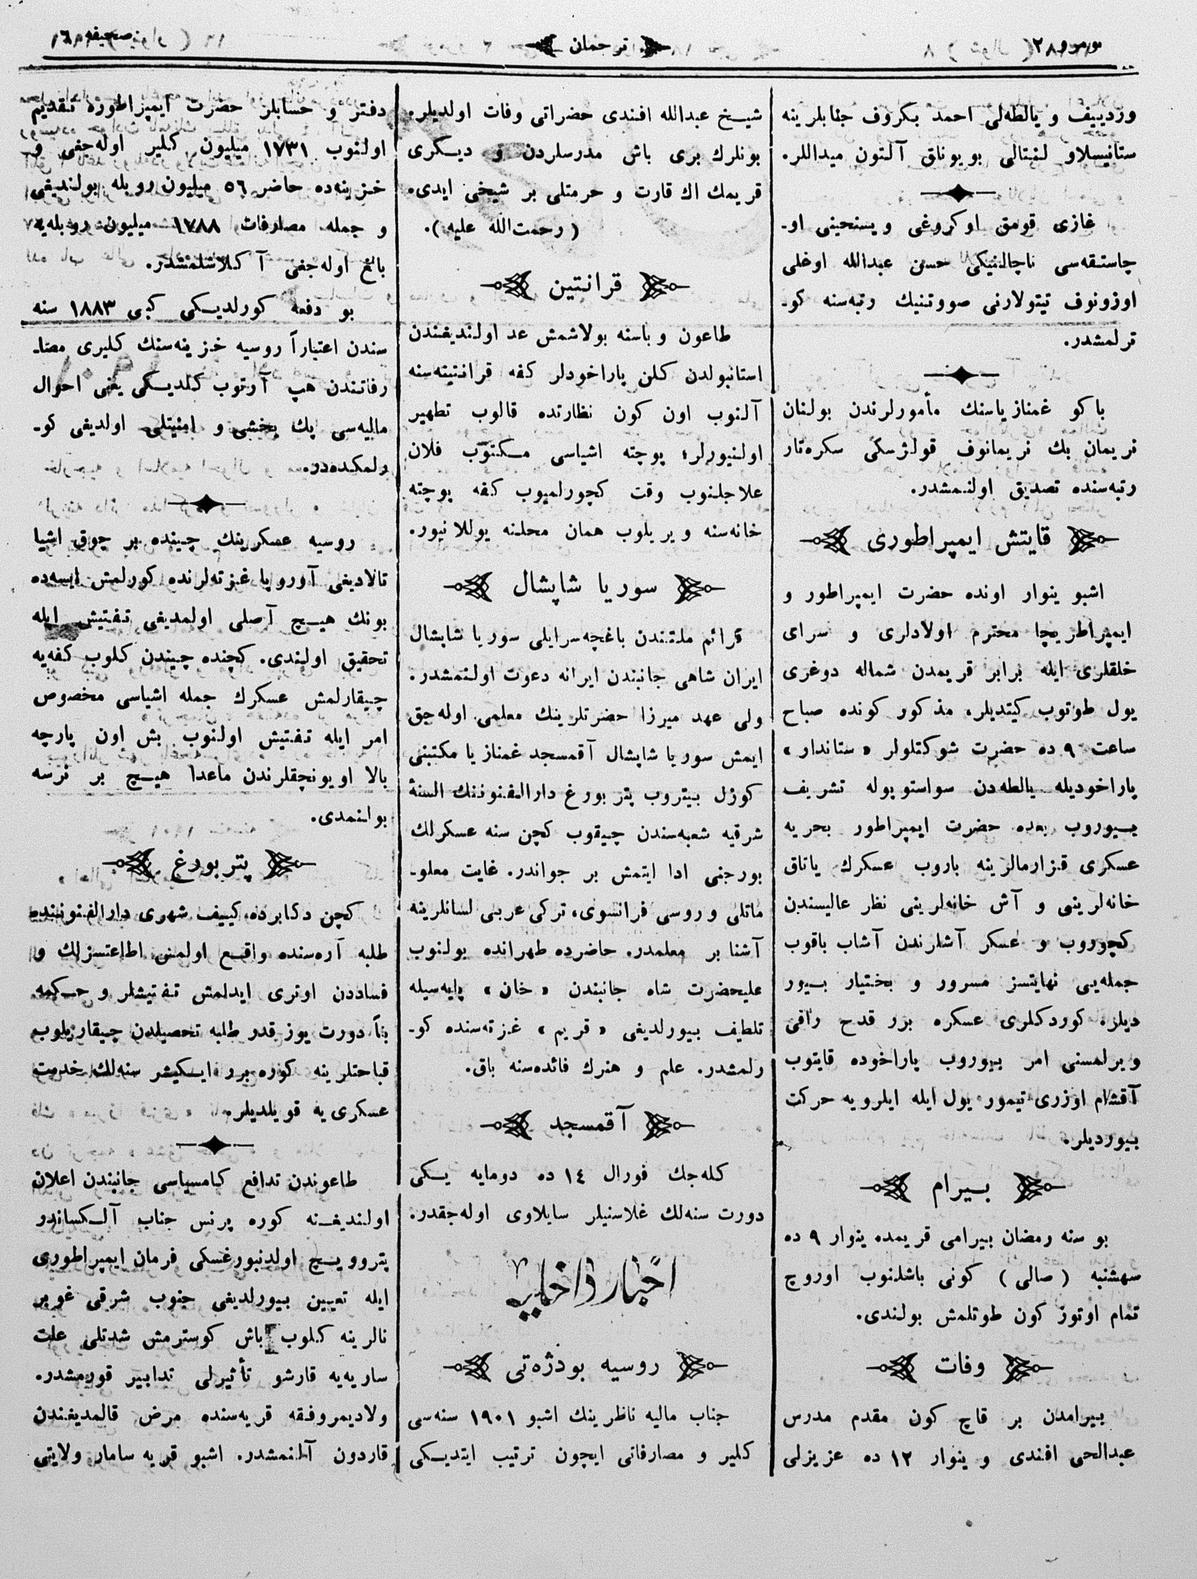 ترجمان
وزدییف و یالطه‌لی احمد بکروف جنابلرینه
ستانیسلاو لفتالی بویوناق آلتون میداللر.
غازی قومق اوکروغی ویسنحینی او-
چاستقه‌سی ناچالنیکی حسن عبدالله اوغلی
اوزونوف تیتولارنی صووتنیك رتبه‌سنه کو-
ترلمشدر.
باکو غمنازیاسنك مأمورلرندن بولنان
نریمان بك نریمانوف قولژسکی سکره‌تار
رتبه‌سنده تصدیق اولنمشدر.
قایتش ایمپراطوری
اشبو ینوار اونده حضرت ایمپراطور و
ایمپراطریچا محترم اولادلری و سرای
خلقلری ایله برابر قریمدن شماله دوغری
یول طوتوب کیتدیلر. مذکور کونده صباح
ساعت ٩ ده حضرت شوکتلولر «ستاندار»
پاراخودیله یالطه‌دن سواستوپوله تشریف
بیوروب بعده حضرت ایمپراطور بحریه
عسکری قزارمالرینه باروب عسکرك یاتاق
خانه‌لرینی و آش خانه‌لرینی نظر عالیسندن
کچوروب و عسکر آشلرندن آشاب باقوب
جمله‌یی نهایتسز مسرور و بختیار بیور
دیلر. کوردکلری عسکره برر قدح راقی
ویرلمسنی امر بیوروب پاراخوده قایتوب
آقشام اوزری تیمور یول ایله ایلرویه حرکت
بیوردیلر.
بیرام
بو سنه رمضان بیرامی قریمده ینوار ٩ ده
سهشنبه (صالی) کونی باشلنوب اوروچ
تمام اوتوز کون طوتلمش بولندی.
وفات
بیرامدن بر قاچ کون مقدم مدرس
عبدالحی افندی و ینوار ١٢ ده عزیزلی
شیخ عبدالله افندی حضراتی وفات اولدیلر.
بونلرك بری باش مدرسلردن و دیکری
قریمك اك قارت و حرمتلی بر شیخی ایدی.
(رحمت‌الله علیه).
قرانتین
طاعون وباسنه بولاشمش عد اولندیغندن
استانبولدن کلن پاراخودلر کفه قرانتینه‌سنه
آلنوب اون کون نظارتده قالوب تطهیر
اولنیورلر؛ پوچته اشیاسی مکتوب فلان
علاجلنوب وقت کچورلمیوب کفه پوچته
خانه‌سنه ویریلوب همان محلنه یوللانیور.
سوریا شاپشال
قرائم ملتندن باغچه‌سرایلی سوریا شاپشال
ایران شاهی جانبندن ایرانه دعوت اولنمشدر.
ولی عهد میرزا حضرتلرینك معلمی اوله‌جق
ایمش سوریا شاپشال آقمسجد غمنازیا مکتبنی
کوزل بیتروب پتربورغ دارالفنوننك السنهٔ
شرقیه شعبه‌سندن چیقوب کچن سنه عسکرلك
بورجنی ادا ایتمش بر جواندر. غایت معلو-
ماتلی و روسی فرانسوی، ترکی عربی لسانلرینه
آشنا بر معلمدر. حاضرده طهرانده بولنوب
علیحضرت شاه جانبندن «خان» پایه‌سیله
تلطیف بیورلدیغی «قریم» غزته‌سنده کو-
رلمشدر. علم و هنرك فائده‌سنه باق.
آقمسجد
کله‌جك فورال ١٤ ده دومایه یکی
دورت سنه‌لك غلاسنیلر سایلاوی اوله‌جقدر.
اخبار داخلیه
روسیه بودژه‌تی
جناب مالیه ناظرینك اشبو ١٩٠١ سنه‌سی
کلیر و مصارفاتی ایچون ترتیب ایتدیکی
دفتر و حسابلر حضرت ایمپراطوره تقدیم
اولنوب ١٧٣١ میلیون کلیر اوله‌جغی و
خزینه‌ده حاضر ٥٦ میلیون روبله بولندیغی
و جمله مصارفات ١٧٨٨ میلیون روبله‌یه
بالغ اوله‌جغی آکلاشلمشدر.
بو دفعه کورلدیکی کبی ١٨٨٣ سنه
سندن اعتباراً روسیه خزینه‌سنك کلیری مصا-
رفاتندن هپ آرتوب کلدیکی یعنی احوال
مالیه‌سی پك یخشی و امنیتلی اولدیغی کو-
رلمکده‌در.
روسیه عسکرینك چینده بر چوق اشیا
تالادیغی آوروپا غزته‌لرنده کورلمش ایسه‌ده
بونك هیچ آصلی اولمدیغی تفتیش ایله
تحقیق اولندی. کچنده چیندن کلوب کفه‌یه
چیقارلمش عسکرك جمله اشیاسی مخصوص
امر ایله تفتیش اولنوب بش اون پارچه
بالا اویونچقلرندن ماعدا هیچ بر نرسه
بولنمدی.
پتربورغ
کچن دکابرده، کییف شهری دارالفنوننده
طلبه آره‌سنده واقع اولمش اطاعتسزلك و
فساددن اوتری ایدلمش تفتیشلر و حکمه
بناً، دورت یوز قدر طلبه تحصیلدن چیقاریلوب
قباحتلرینه کوره برر ایکیشر سنه‌لك خدمت
عسکری یه قویلدیلر.
طاعوندن تدافع کامسیاسی جانبندن اعلان
اولندیغنه کوره پرنس جناب آلکساندر
پتروویچ اولدنبورغسکی فرمان ایمپراطوری
ایله تعیین بیورلدیغی جنوب شرقی غوبر
نالرینه کلوب باش کوسترمش شدتلی علت
ساریه‌یه قارشو تأثیرلی تدابیر قورمشدر.
ولادیمروفقه قریه‌سنده مرض قالمدیغندن
قاردون آلنمشدر. اشبو قریه سامار ولایتی